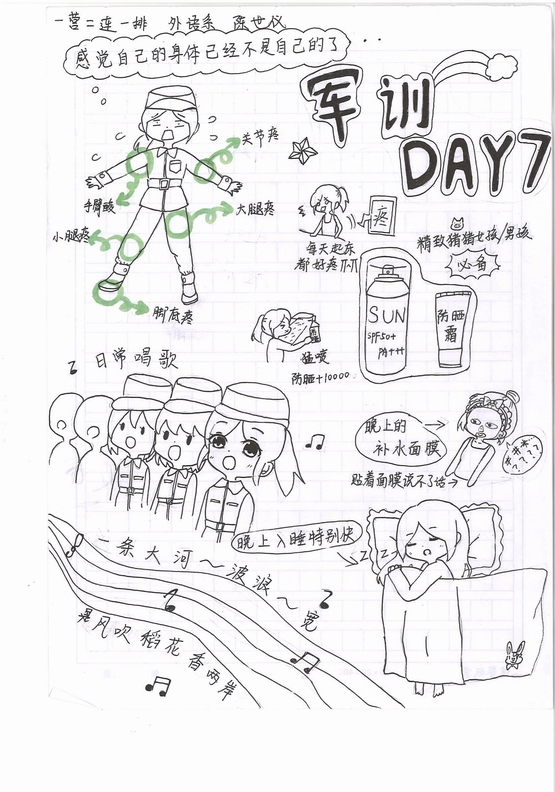 一营二连一排 外语系 陈世仪
感觉自己的身体已经不是自己的了
军训
DAY7
关节疼
手臂酸
大腿疼
小腿疼
脚底疼
疼
每天起床
都好疼
精致猪猪女孩/男孩
必备
SUN
SPF50+
PA+++
防晒
霜
猛喷
防晒+10000
日常唱歌
晚上的
补水面膜
贴着面膜说不了话
晚上入睡特别快
zzz
一条大河～波浪～宽
是风吹稻花香两岸